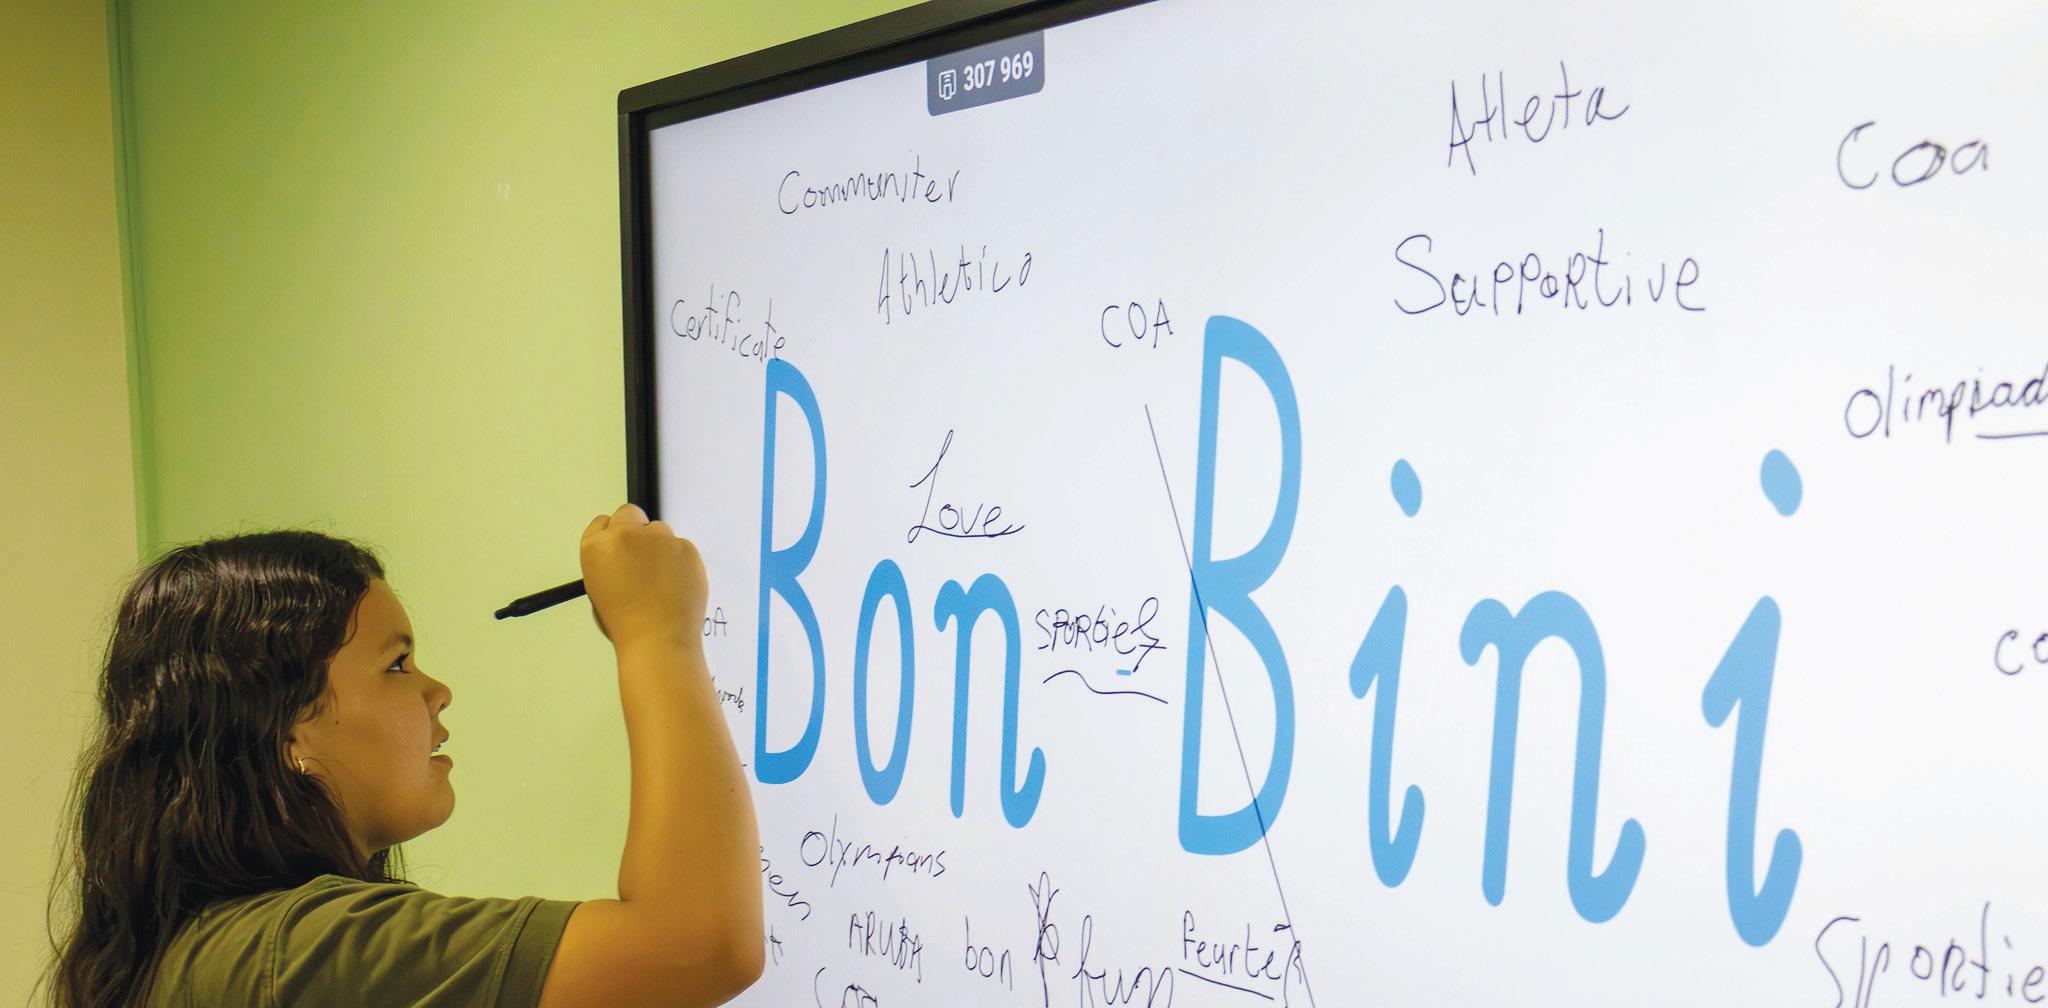 307 969
Atleta
Coa
Communiter
Athletica
Supportive
Certificate
COA
Olimpiad
Love
Bon Bini
SPORtief
co
Olympians
ARUBA bon
fun
Sportie
Coa